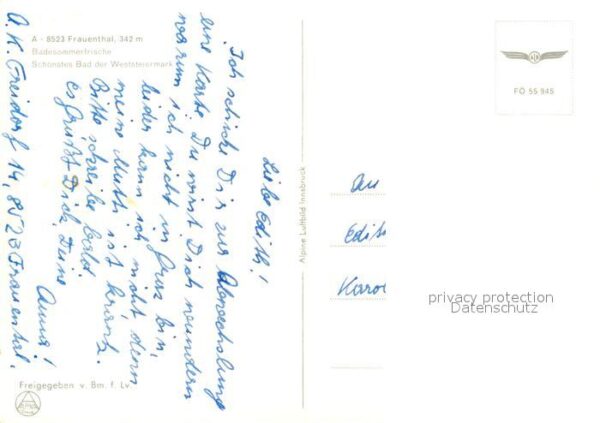 A - 8523 Frauenthal, 342 m
Badesommerfrische
Schönstes Bad der Weststeiermark
Liebe Edith!
Ich schicke Dir zur Abwechslung
eine Karte. Du wirst Dich wundern
warum ich nicht in Graz bin,
leider kann ich nicht, denn
meine Mutti ist krank.
Bitte schreibe bald
Es grüßt Dich Deine
Anna!
A. K. Freidorf 14, 8523 Frauental,
Freigegeben v. Bm. f. Lv.
Alpine Luftbild Innsbruck
FÖ 55 945
An
Edith
Karol
privacy protection
Datenschutz